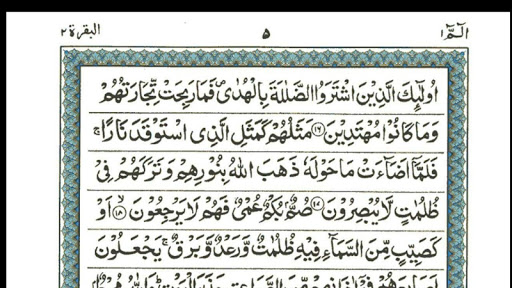 الٓمّٓ ۱ ۵ البقرة ۲
اُولٰٓئِكَ الَّذِيۡنَ اشۡتَرَوُا الضَّلٰلَةَ بِالۡهُدٰى فَمَا رَبِحَتۡ تِّجَارَتُهُمۡ
وَمَا كَانُوۡا مُهۡتَدِيۡنَ ﴿۱۶﴾ مَثَلُهُمۡ كَمَثَلِ الَّذِى اسۡتَوۡقَدَ نَارًا ۚ
فَلَمَّآ اَضَآءَتۡ مَا حَوۡلَهٗ ذَهَبَ اللّٰهُ بِنُوۡرِهِمۡ وَتَرَكَهُمۡ فِىۡ
ظُلُمٰتٍ لَّا يُبۡصِرُوۡنَ ﴿۱۷﴾ صُمٌّۢ بُكۡمٌ عُمۡىٌ فَهُمۡ لَا يَرۡجِعُوۡنَ ۙ﴿۱۸﴾ اَوۡ
كَصَيِّبٍ مِّنَ السَّمَآءِ فِيۡهِ ظُلُمٰتٌ وَّرَعۡدٌ وَّبَرۡقٌ ۚ يَجۡعَلُوۡنَ